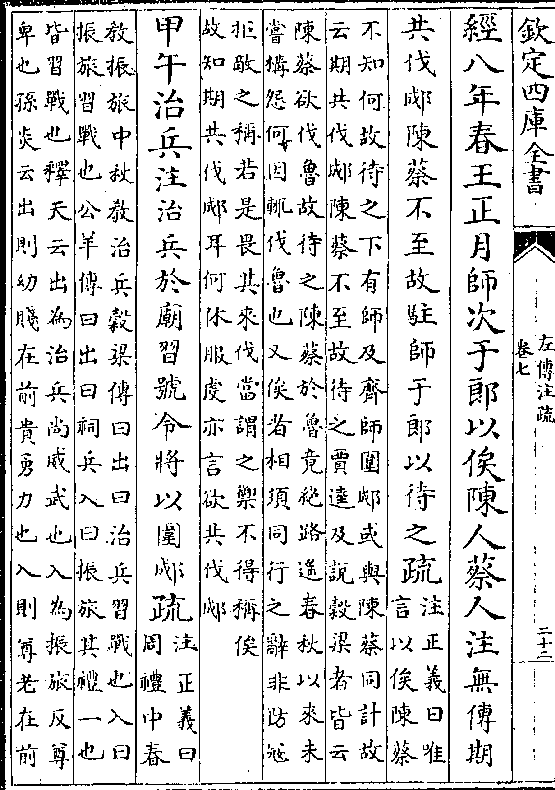 欽定四庫全書
左傳注疏
卷七
二十二
經八年春王正月師次于郎以俟陳人蔡人注無傳期
共伐郕陳蔡不至故駐師于郎以待之疏
注正義曰唯
言以俟陳蔡
不知何故待之下有師及齊師圍郕或與陳蔡同計故
云期共伐郕陳蔡不至故待之賈逵及說穀梁者皆云
陳蔡欲伐魯故待之陳蔡於魯竟絕路遥春秋以來未
嘗構怨何因輒伐魯也又俟者相須同行之辭非防寇
拒敵之稱若是畏其來伐當謂之禦不得稱俟
故知期共伐郕耳何休服虔亦言欲共伐郕
甲午治兵注治兵於廟習號令將以圍郕疏
注正義曰
周禮中春
教振旅中秋教治兵穀梁傳曰出曰治兵習戰也入曰
振旅習戰也公羊傳曰出曰祠兵入曰振旅其禮一也
皆習戰也釋天云出為治兵尚威武也入為振旅反尊
卑也孫炎云出則幼賤在前貴勇力也入則尊老在前